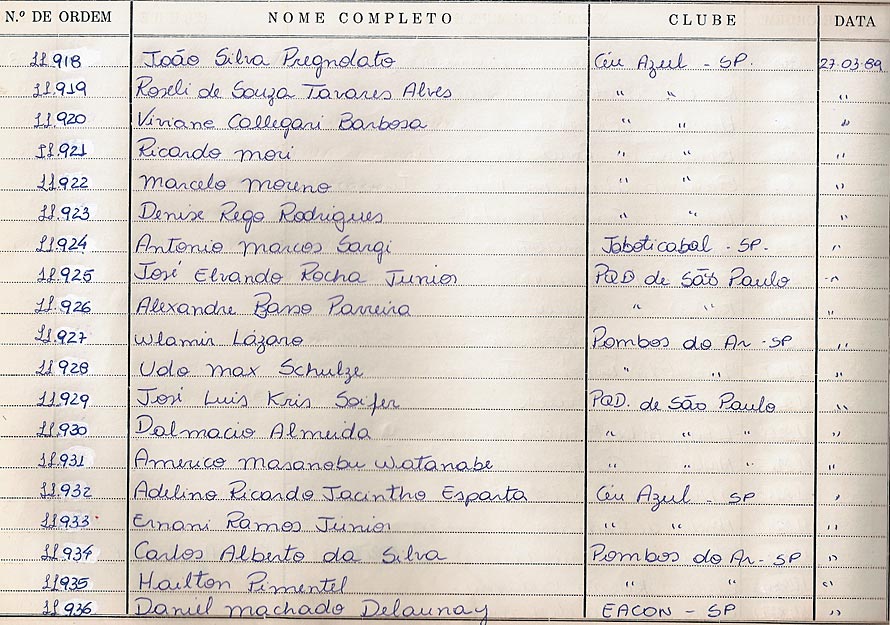 N.º DE ORDEM NOME COMPLETO CLUBE DATA
11.918 João Silva Pregnolato Céu Azul - SP. 27.03.89
11.919 Roseli de Souza Tavares Alves " " "
11.920 Viviane Callegari Barbosa " " "
11.921 Ricardo Mori " " "
11.922 Marcelo Moreno " " "
11.923 Denise Rego Rodrigues " " "
11.924 Antonio Marcos Sargi Jaboticabal - SP. "
11.925 José Elvando Rocha Junior PQD de São Paulo "
11.926 Alexandre Basso Parreira " " "
11.927 Wlamir Lázaro Pombos do Ar - SP "
11.928 Udo Max Schulze " " "
11.929 José Luis Kris Saifer PQD. de São Paulo "
11.930 Dalmacio Almeida " " " "
11.931 Americo Masanobu Watanabe " " " "
11.932 Adelino Ricardo Jacintho Esparta Céu Azul - SP "
11.933 Ernani Ramos Júnior " " "
11.934 Carlos Alberto da Silva Pombos do Ar - SP "
11.935 Hailton Pimentel " " "
11.936 Daniel Machado Delaunay EACON - SP "